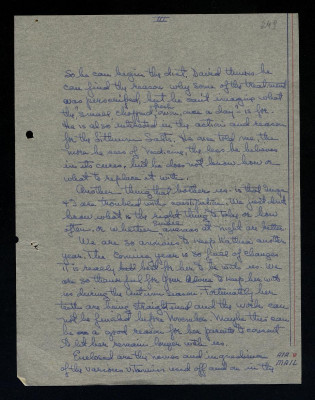 III
249
So he can begin the diet. David thinks he
can find the reason why some of the treatment
was prescribed, but he can't imagine what
the "small chopped onion, once a day" is for.
He is also interested in the action and reason
for the salts. He has told me, the
more he sees of medicine, the less he believes
in its cures, but he does not know how or
what to replace it with.
Another thing that bothers us is that
+ I are troubled with We just don't
know what is the right thing to take or how
often, or whether enemas at night are better.
We are so anxious to keep Kit this another
year. This coming year is so full of changes
it is nearly best for her to be with us. We
are so thankful for your to keep her with
us during the season. Fortunately her
teeth are being straightened and the work can
not be finished before November. Maybe this can
be a good reason for her parents to consent
to let her remain longer with us.
Enclosed are the names and ingredients
of the various vitamins used off and on in the
AIR
MAIL